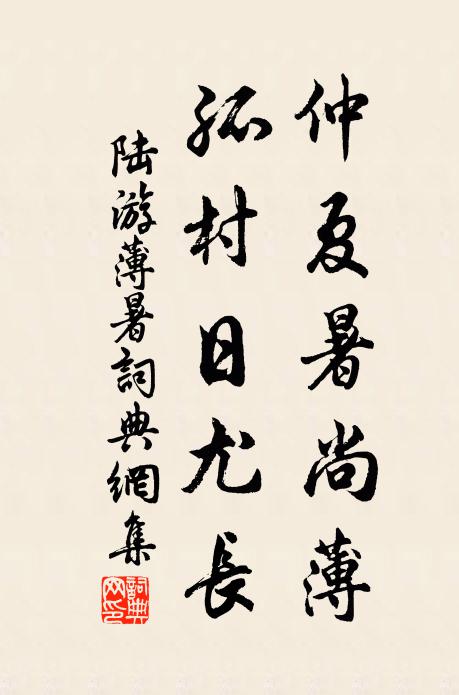 仲夏暑尚薄
孤村日尤長
陆游薄暑詞典網集
詞典网印